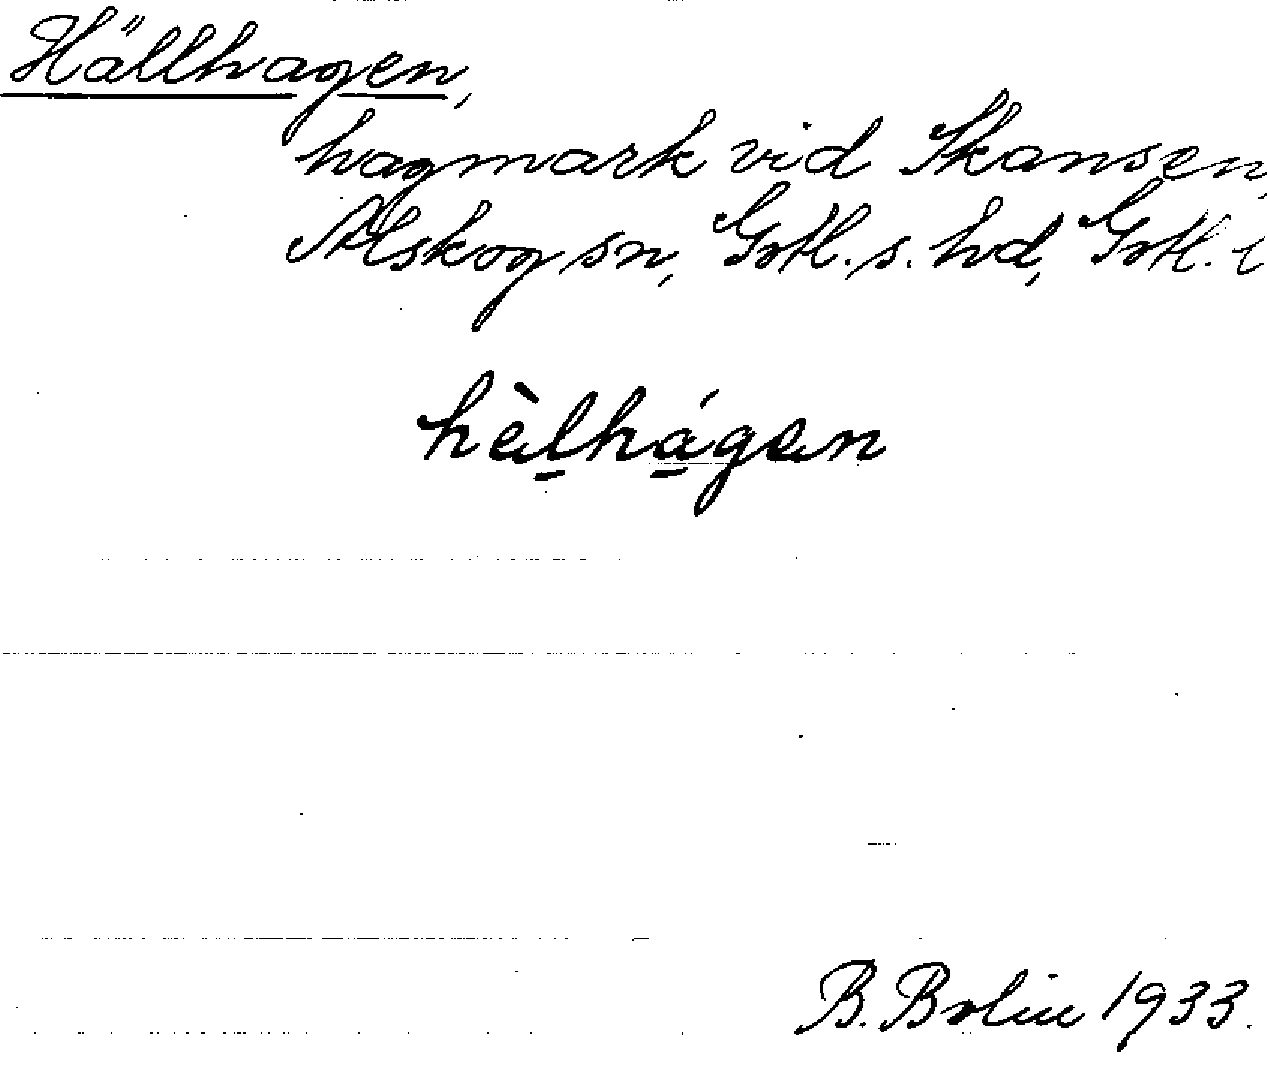 Hällhagen,
hagmark vid Skansen,
Alskog sn, Gotl. s. hd, Gotl. l
hèlhágen
B. Bolin 1933.